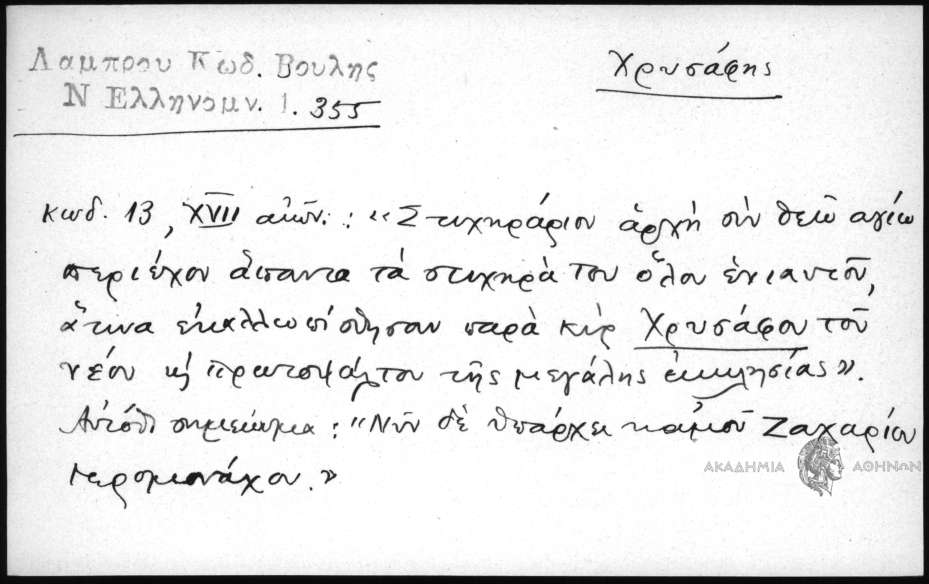 Λαμπρου Κωδ. Βουλης
Χρυσάφης
Ν Ελληνομν. 1. 355
κωδ. 13, XVII αἰών.: "Στιχηράριον ἀρχὴ σὺν θεῶ αγίω
περιέχον ἅπαντα τὰ στιχηρὰ του ὅλου ἐνιαυτοῦ,
ἅτινα ἐκαλλωπίσθησαν παρὰ κὺρ Χρυσάφου τοῦ
νέου κὶ πρωτοψάλτου τῆς μεγάλης ἐκκλησίας".
Αὐτόθι σημείωμα: "Νῦν δὲ ὑπάρχει κἀμοῦ Ζαχαρίου
ιερομονάχου."
ΑΚΑΔΗΜΙΑ ΑΘΗΝΩΝ